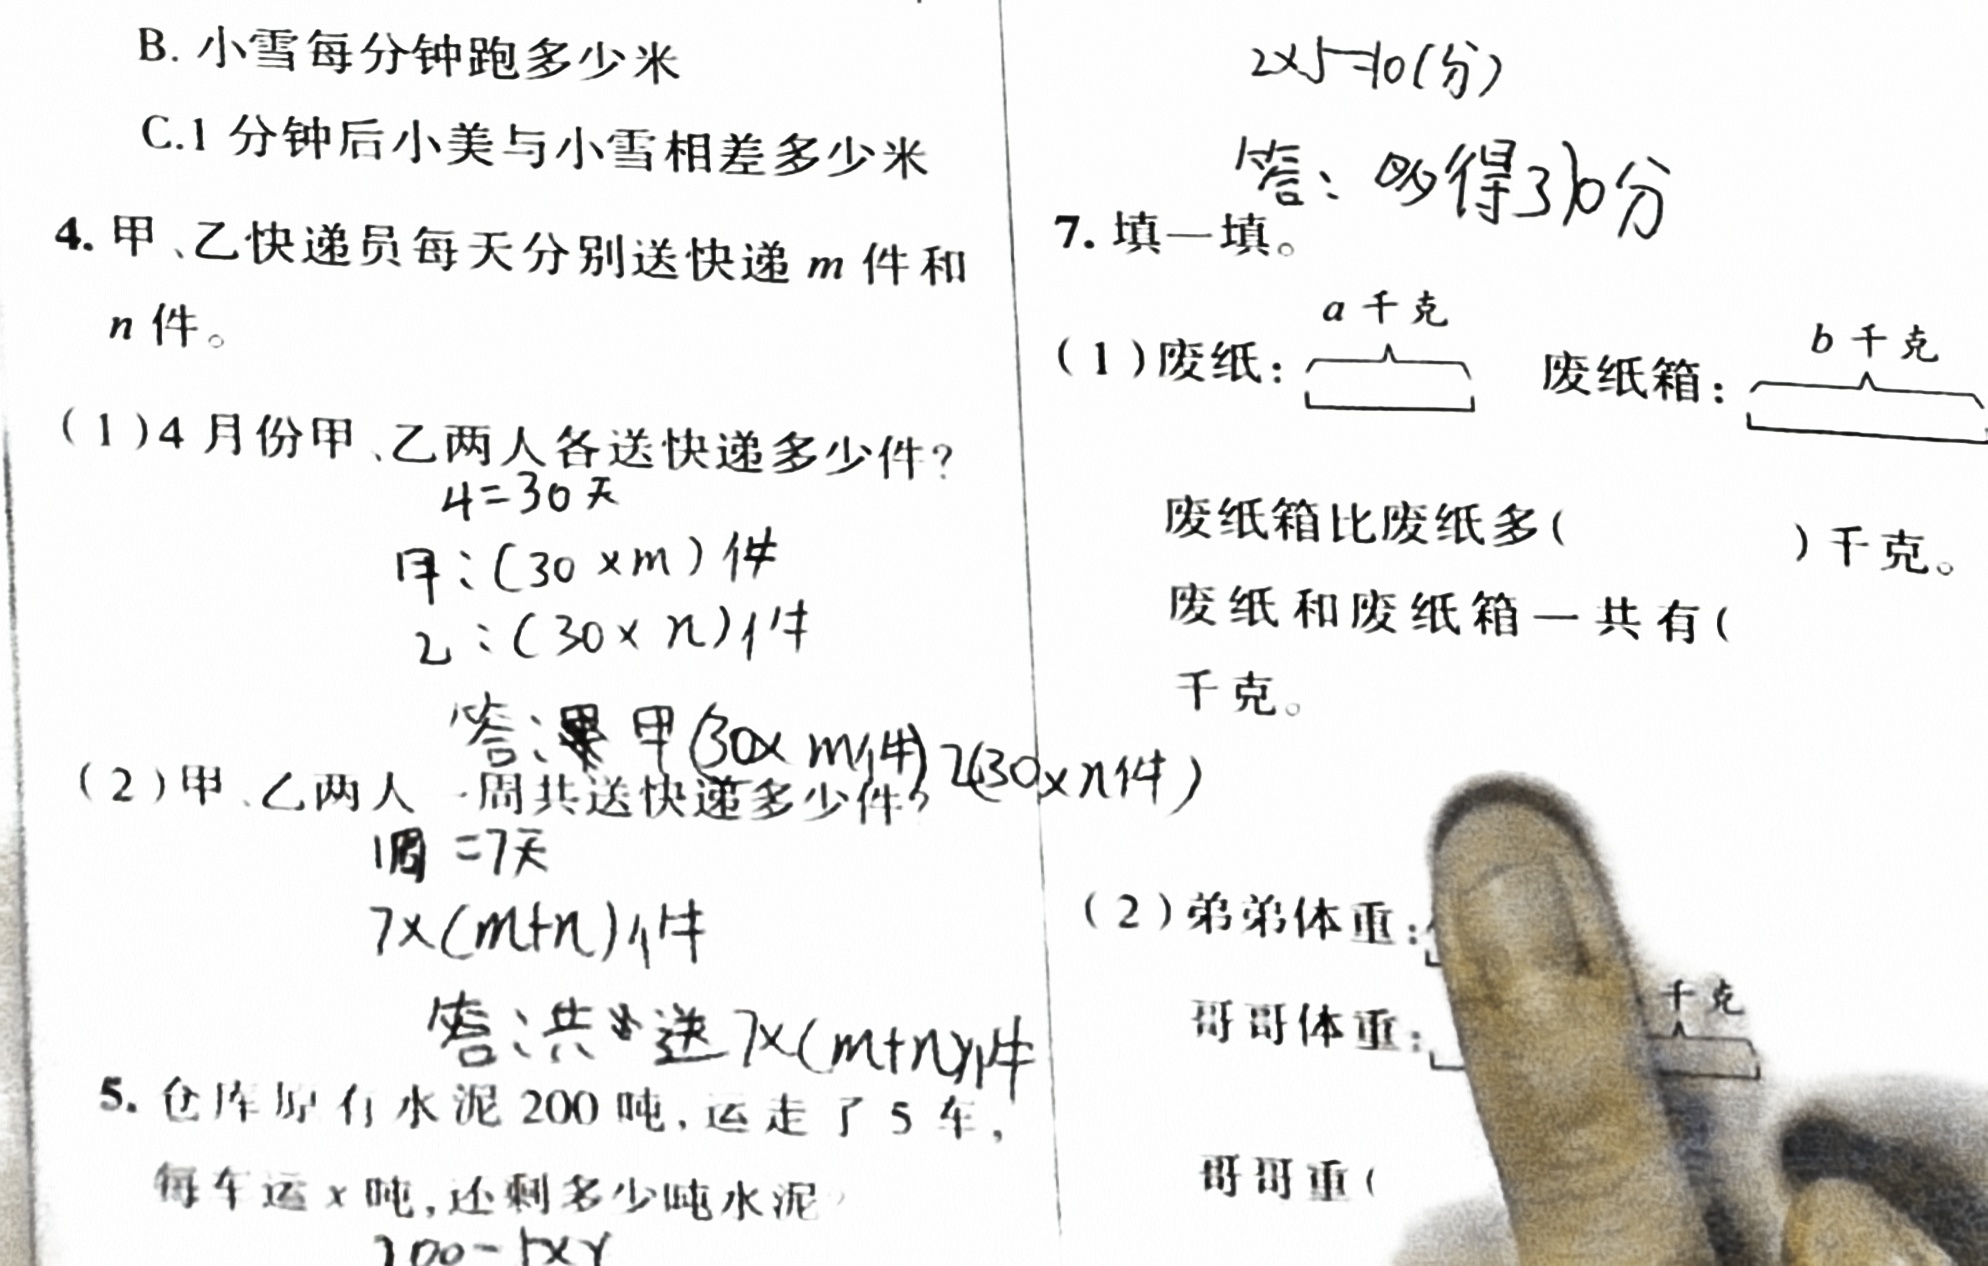 B. 小雪每分钟跑多少米
C.1 分钟后小美与小雪相差多少米
4. 甲、乙快递员每天分别送快递 m 件和
n 件。
(1)4 月份甲、乙两人各送快递多少件?
4=30天
甲:(30×m)件
乙:(30×n)件
答: 甲(30×m件)乙(30×n件)
(2)甲、乙两人一周共送快递多少件?
1周=7天
7×(m+n)件
答:共送7×(m+n)件
5. 仓库原有水泥 200 吨,运走了 5 车,
每车运 x 吨,还剩多少吨水泥?
200-5×x
2×5=10(分)
答: 得 分
7. 填一填。
a 千克
b 千克
(1)废纸: 废纸箱:
废纸箱比废纸多( )千克。
废纸和废纸箱一共有(
千克。
(2)弟弟体重:
千克
哥哥体重:
哥哥重(